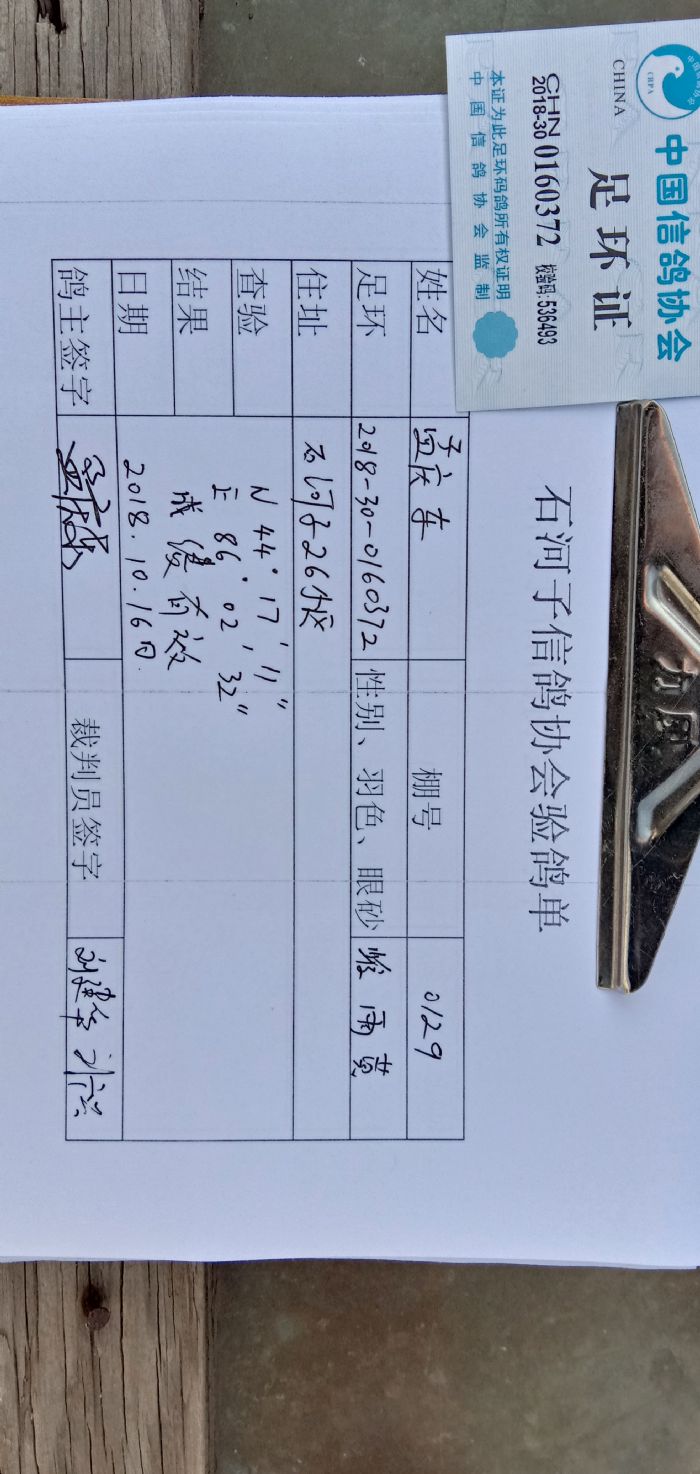 中国信鸽协会
CHRPA
足环证
CHINA
CHN
2018-30 0160372 校验码:536493
本证为此足环码鸽所有权证明
中国信鸽协会监制
石河子信鸽协会验鸽单
姓名 孟庆东 棚号 0129
足环 2018-30-0160372 性别、羽色、眼砂 雌 雨 黄
住址 石河子26小区
查验 N 44° 17′ 11″
E 86° 02′ 32″
结果 成绩有效
日期 2018.10.16日.
鸽主签字 裁判员签字 刘建华